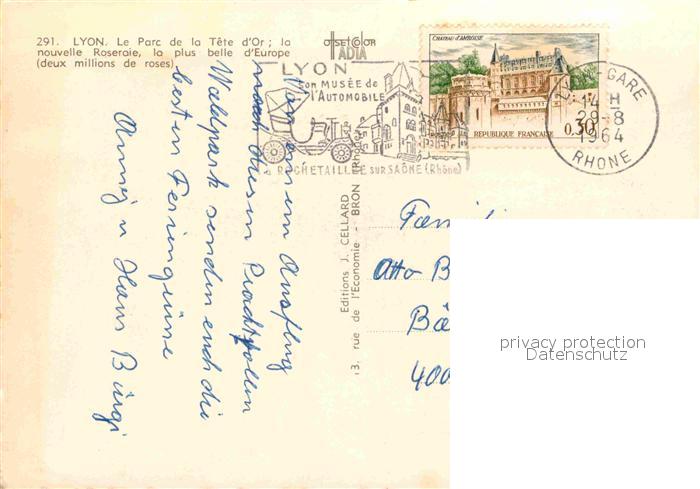 291. LYON. Le Parc de la Tête d'Or ; la
nouvelle Roseraie, la plus belle d'Europe
(deux millions de roses).
OFFSETCOLOR
IADIA
LYON
son MUSÉE de
l'AUTOMOBILE
à ROCHETAILLÉE sur SAÔNE (Rhône)
CHATEAU D'AMBOISE
REPUBLIQUE FRANÇAISE
0,30
LYON GARE
14 H
29-8
1964
RHONE
Editions J. CELLARD
13, rue de l'Economie - BRON (Rhône)
Von einem Ausflug
nach diesem Prachtvollen
Waldpark senden euch die
besten Feriengrüsse
Annöj u Hans Bürgi
Famili
Otto B
Bä
400
privacy protection
Datenschutz